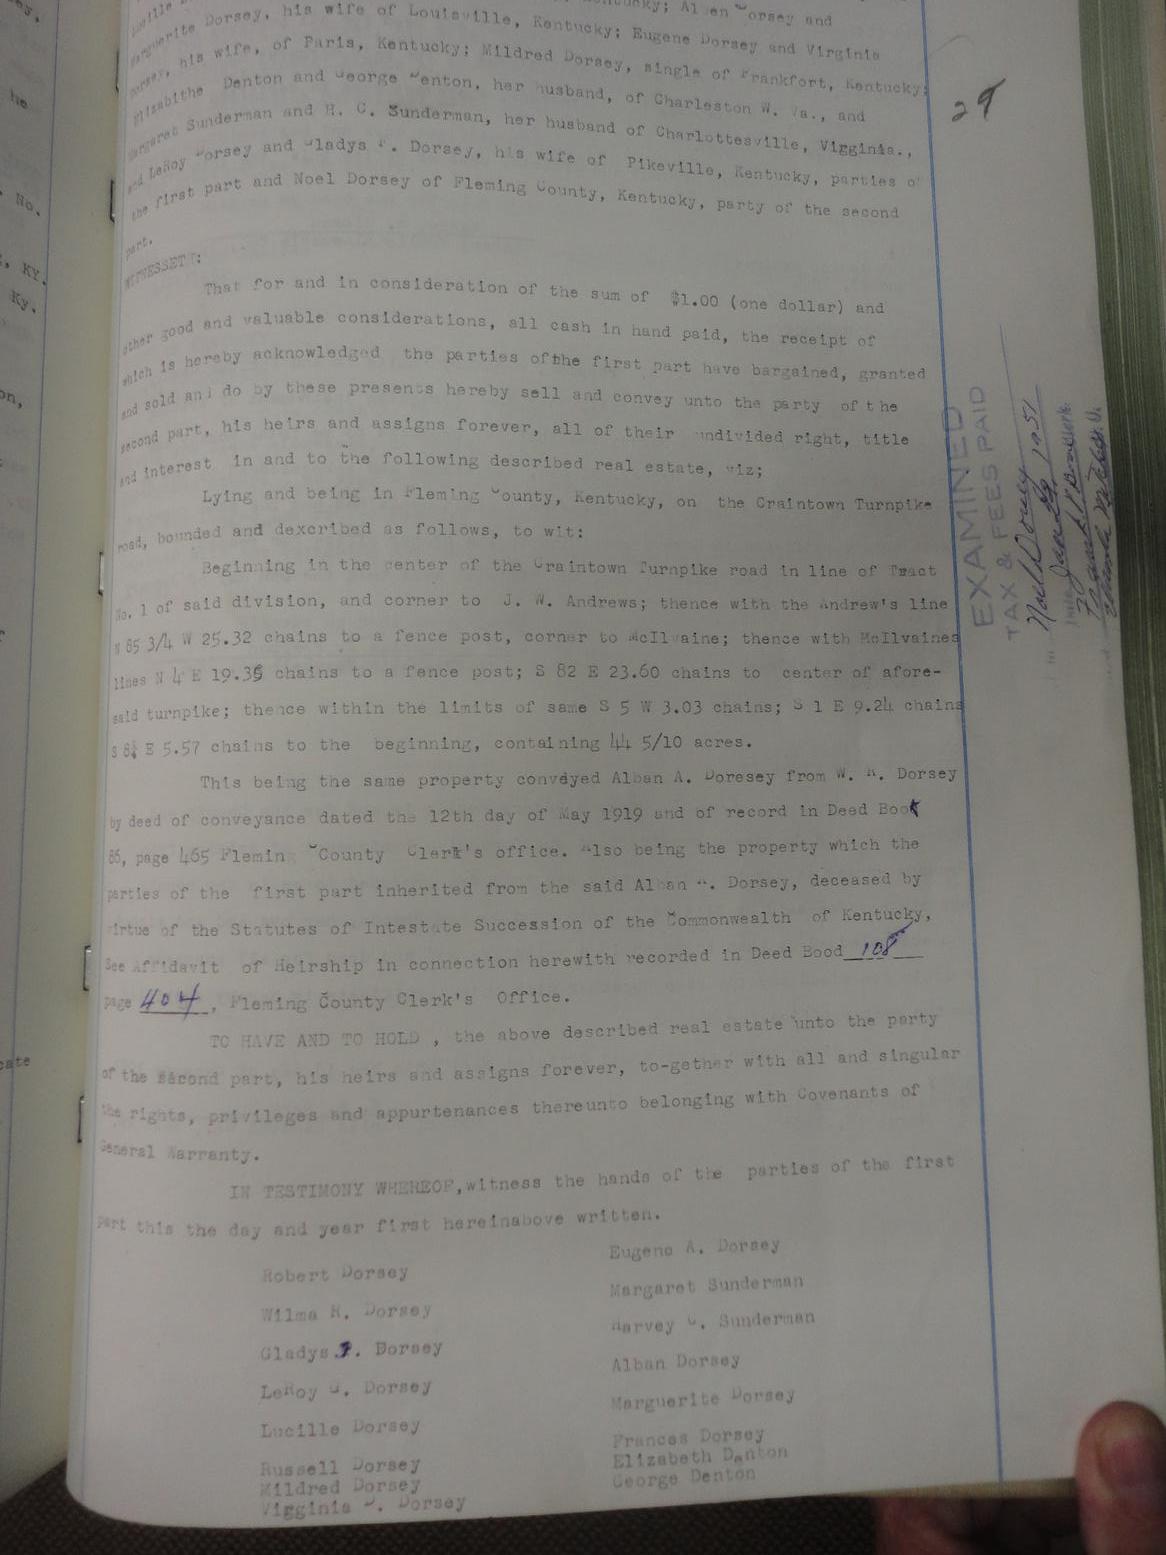 Marguerite Dorsey, his wife of Louisville, Kentucky; Eugene Dorsey and Virginia
Dorsey, his wife, of Paris, Kentucky; Mildred Dorsey, single of Frankfort, Kentucky;
Elizabithe Denton and George Denton, her husband, of Charleston W. Va., and
Margaret Sunderman and H. C. Sunderman, her husband of Charlottesville, Vigginia.,
and LeRoy Dorsey and Gladys P. Dorsey, his wife of Pikeville, Kentucky, parties of
the first part and Noel Dorsey of Fleming County, Kentucky, party of the second
part.
29
WITNESSETH:
That for and in consideration of the sum of $1.00 (one dollar) and
other good and valuable considerations, all cash in hand paid, the receipt of
which is hereby acknowledged the parties ofthe first part have bargained, granted
and sold and do by these presents hereby sell and convey unto the party of the
second part, his heirs and assigns forever, all of their undivided right, title
and interest in and to the following described real estate, viz;
Lying and being in Fleming County, Kentucky, on the Craintown Turnpike
road, bounded and dexcribed as follows, to wit:
Beginning in the center of the Craintown Turnpike road in line of Tract
No. 1 of said division, and corner to J. W. Andrews; thence with the Andrew's line
N 85 3/4 W 25.32 chains to a fence post, corner to McIlvaine; thence with McIlvaines
lines N 4 E 19.35 chains to a fence post; S 82 E 23.60 chains to center of afore-
said turnpike; thence within the limits of same S 5 W 3.03 chains; S 1 E 9.24 chains
S E 5.57 chains to the beginning, containing 44 5/10 acres.
This being the same property conveyed Alban A. Doresey from W. Dorsey
by deed of conveyance dated the 12th day of May 1919 and of record in Deed Book
86, page 465 Fleming County Clerk's office. Also being the property which the
parties of the first part inherited from the said Alban A. Dorsey, deceased by
virtue of the Statutes of Intestate Succession of the Commonwealth of Kentucky,
See Affidavit of Heirship in connection herewith recorded in Deed Bood 108
page 404, Fleming County Clerk's Office.
TO HAVE AND TO HOLD , the above described real estate unto the party
of the second part, his heirs and assigns forever, to-gether with all and singular
the rights, privileges and appurtenances thereunto belonging with Covenants of
General Warranty.
IN TESTIMONY WHEREOF,witness the hands of the parties of the first
part this the day and year first hereinabove written.
Robert Dorsey
Wilma R. Dorsey
Gladys P. Dorsey
LeRoy G. Dorsey
Lucille Dorsey
Russell Dorsey
Mildred Dorsey
Vigginia Dorsey
Eugene A. Dorsey
Margaret Sunderman
Harvey C. Sunderman
Alban Dorsey
Marguerite Dorsey
Frances Dorsey
Elizabeth Denton
George Denton
EXAMINED
TAX & FEES PAID
Noel Dorsey
Jan 29 1951